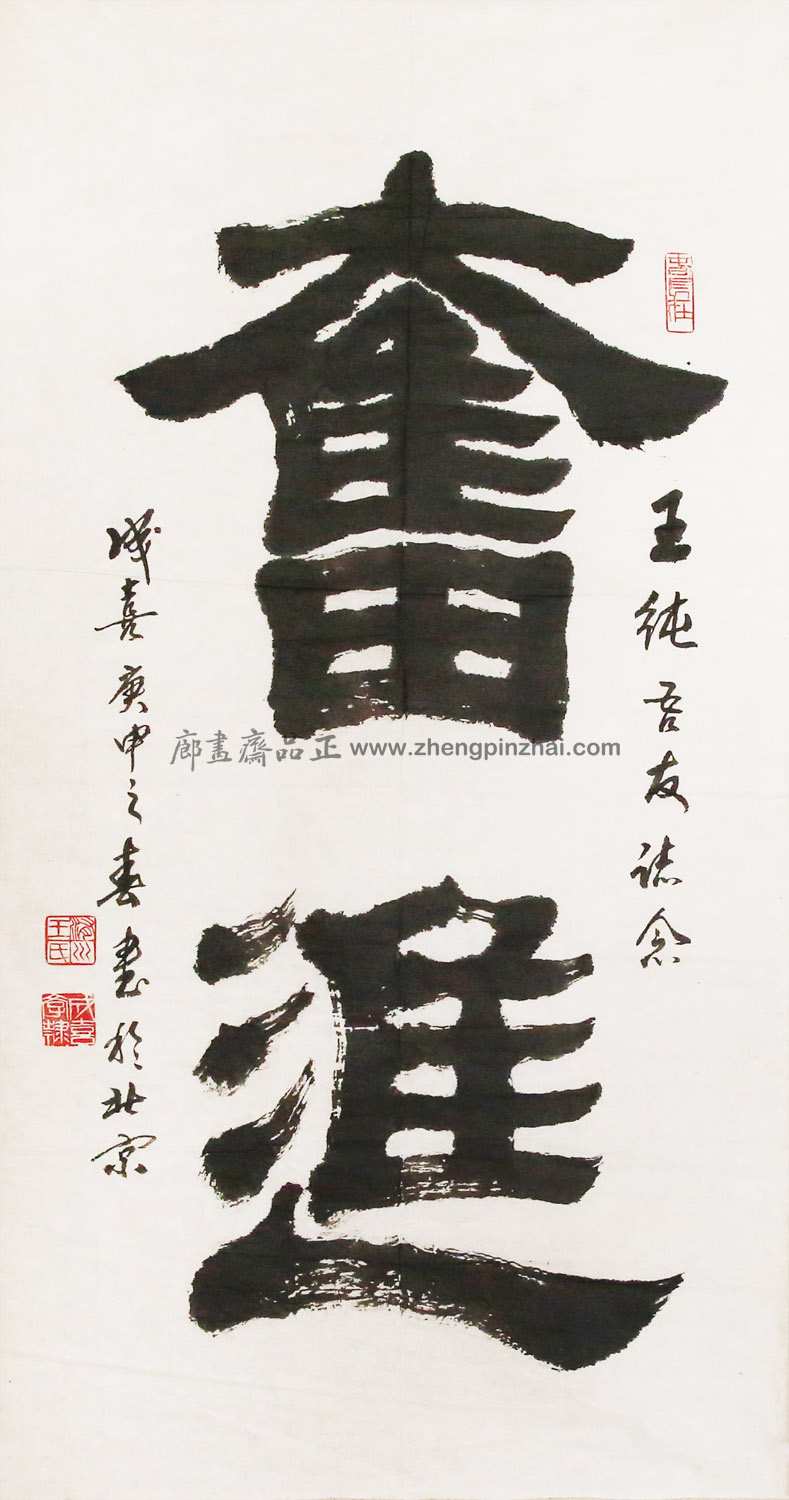 王纯吾友誌念
奮進
成喜庚申之春書於北京
廊畫齋品正 www.zhengpinzhai.com
王氏
成喜